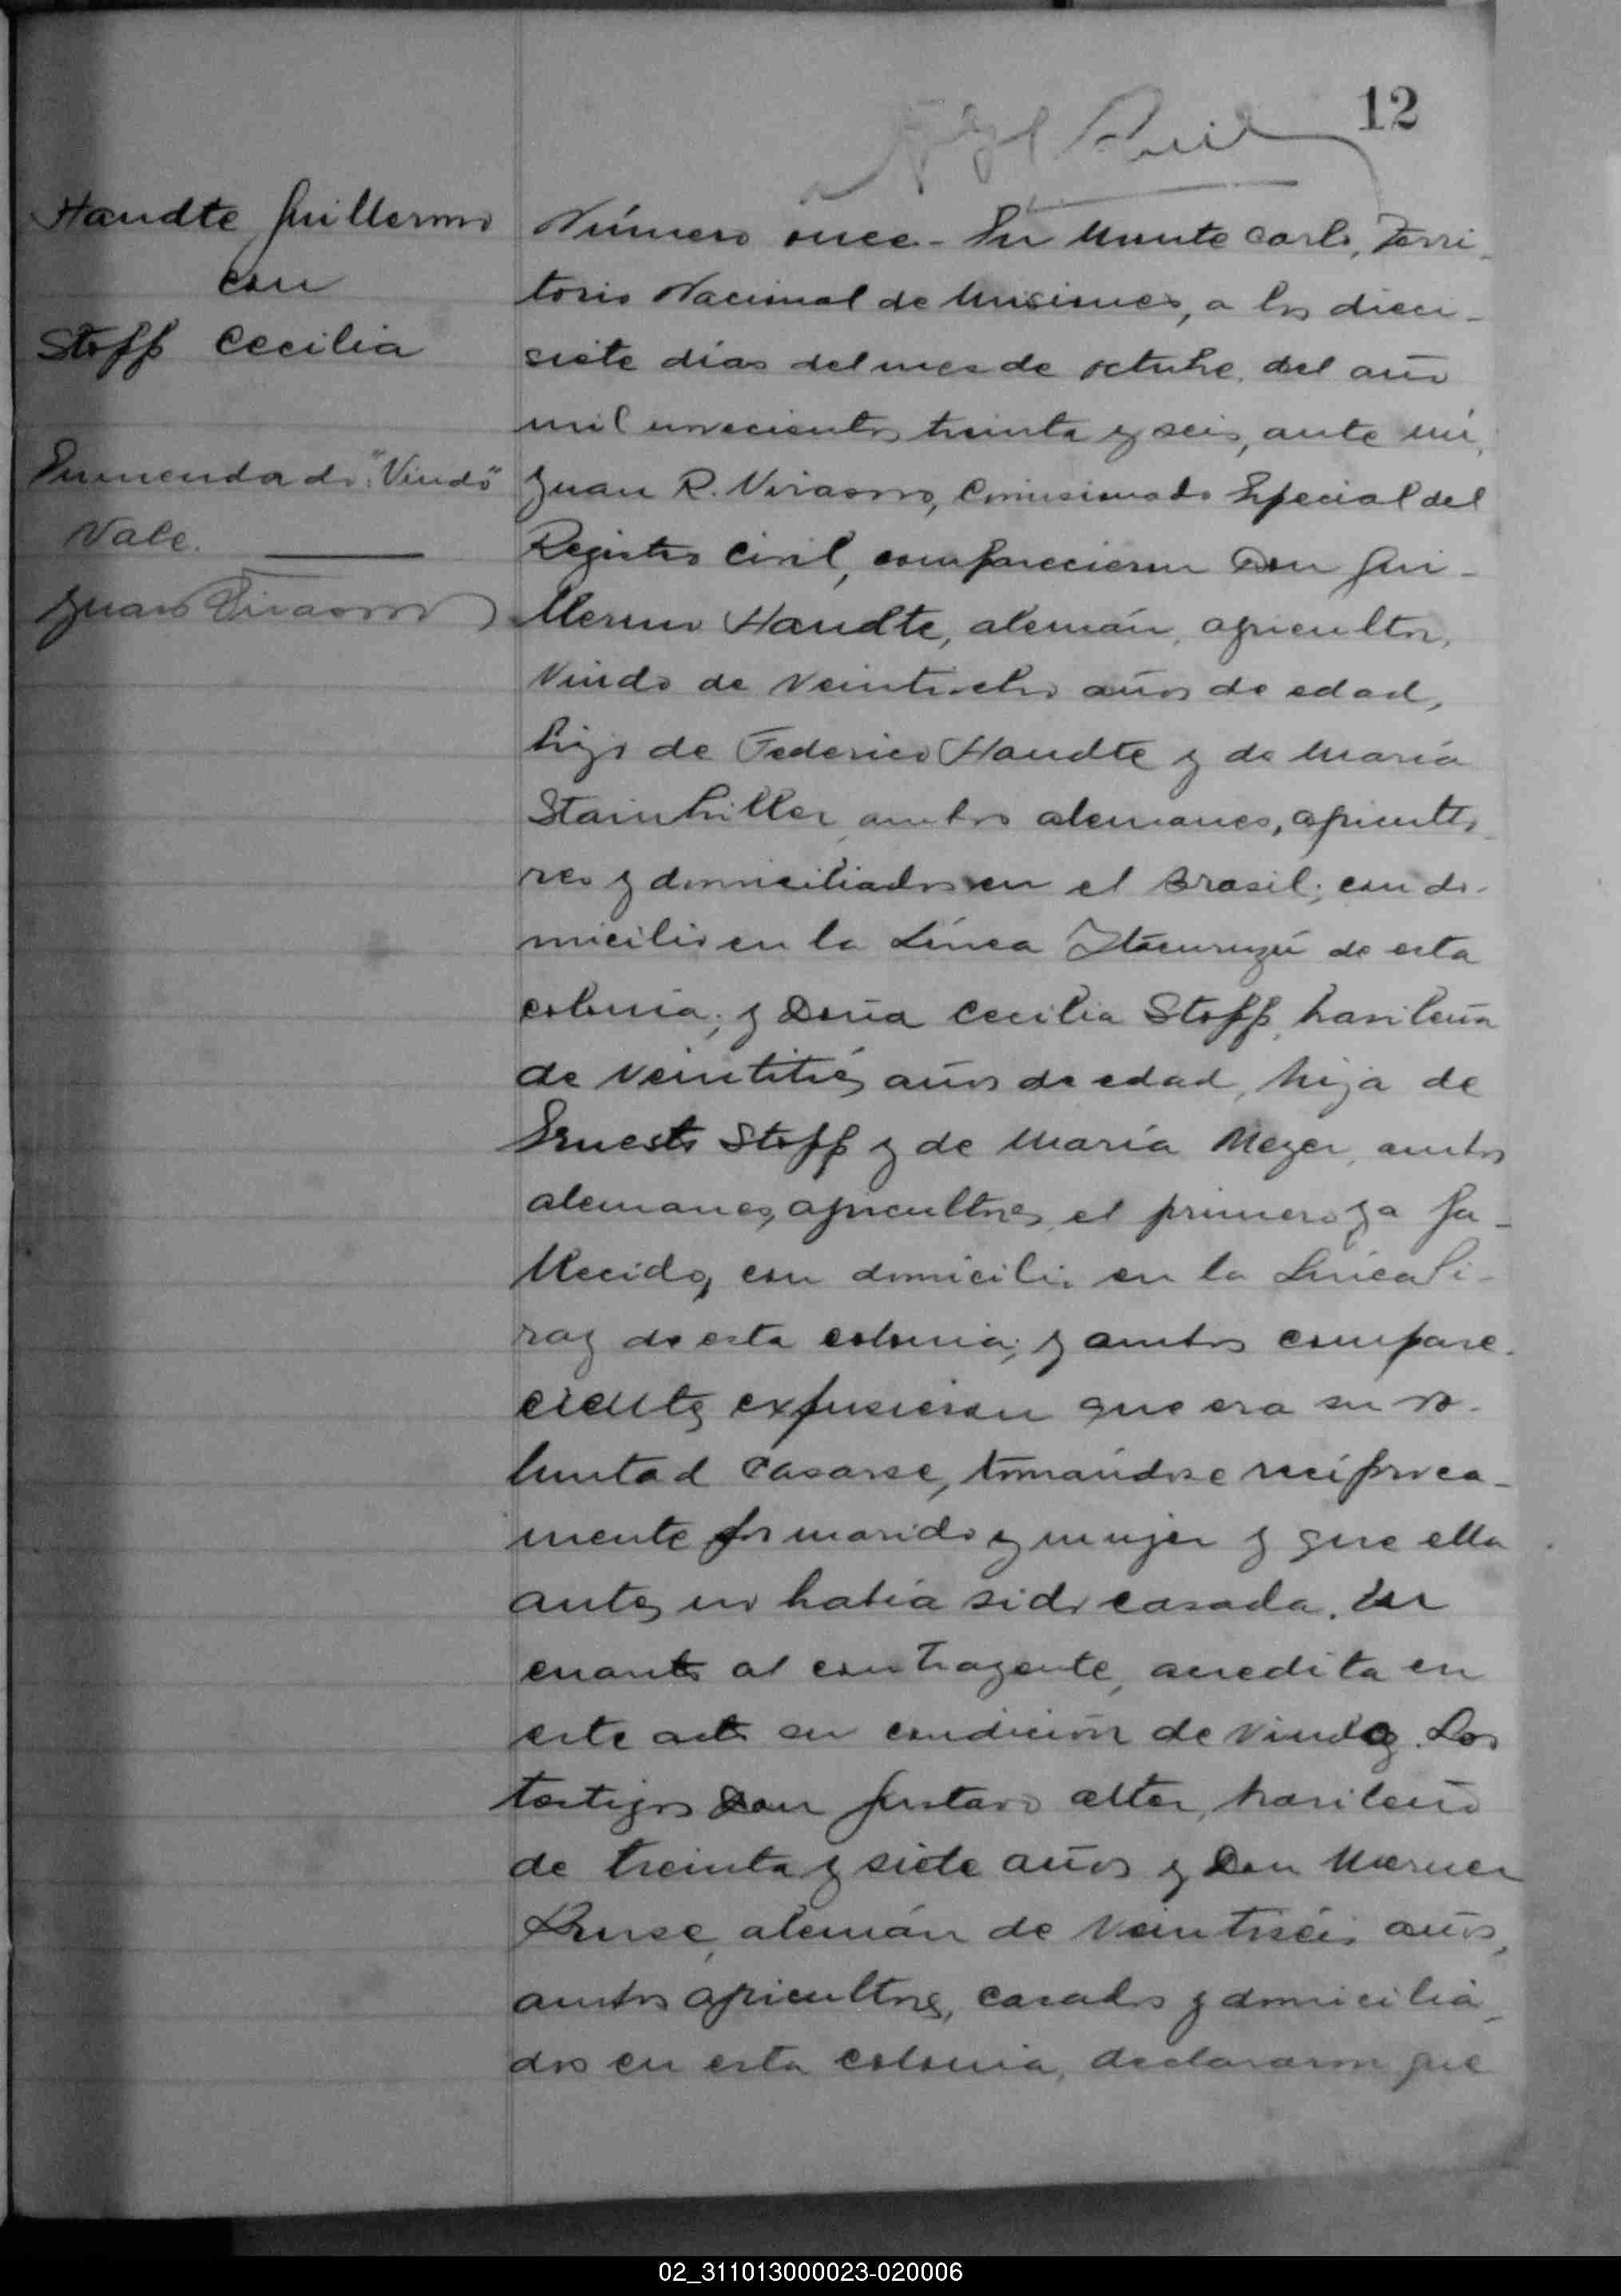 12
Handte Guillermo
con
Stoff Cecilia
Enmendado: "Viudo"
Vale.
Juan Virasoro
Número once - En Monte Carlo, Terri-
torio Nacional de Misiones, a los dieci-
siete días del mes de octubre del año
mil novecientos treinta y seis, ante mí,
Juan R. Virasoro, Comisionado Especial del
Registro Civil, comparecieron Don Gui-
llermo Handte, alemán, agricultor,
Viudo de veintiocho años de edad,
hijo de Federico Handte y de María
Stainhiller ambos alemanes, agriculto-
res y domiciliados en el Brasil; con do-
micilio en la Línea Itacuruzú de esta
colonia; y Doña Cecilia Stoff, brasileña
de veintitrés años de edad, hija de
Ernesto Stoff y de María Meyer, ambos
alemanes, agricultores, el primero ya fa-
llecido, con domicilio en la Línea Pi-
ray de esta colonia; y ambos compare-
cientes expusieron que era su vo-
luntad casarse, tomándose recíproca-
mente por marido y mujer y que ella
antes no había sido casada. En
cuanto al contrayente, acredita en
este acto su condición de viudo. Los
testigos Don Gustavo Alter, brasileño
de treinta y siete años y Don Werner
Kruse, alemán de veintiséis años,
ambos agricultores, casados y domicilia-
dos en esta colonia, declararon que
02_311013000023-020006